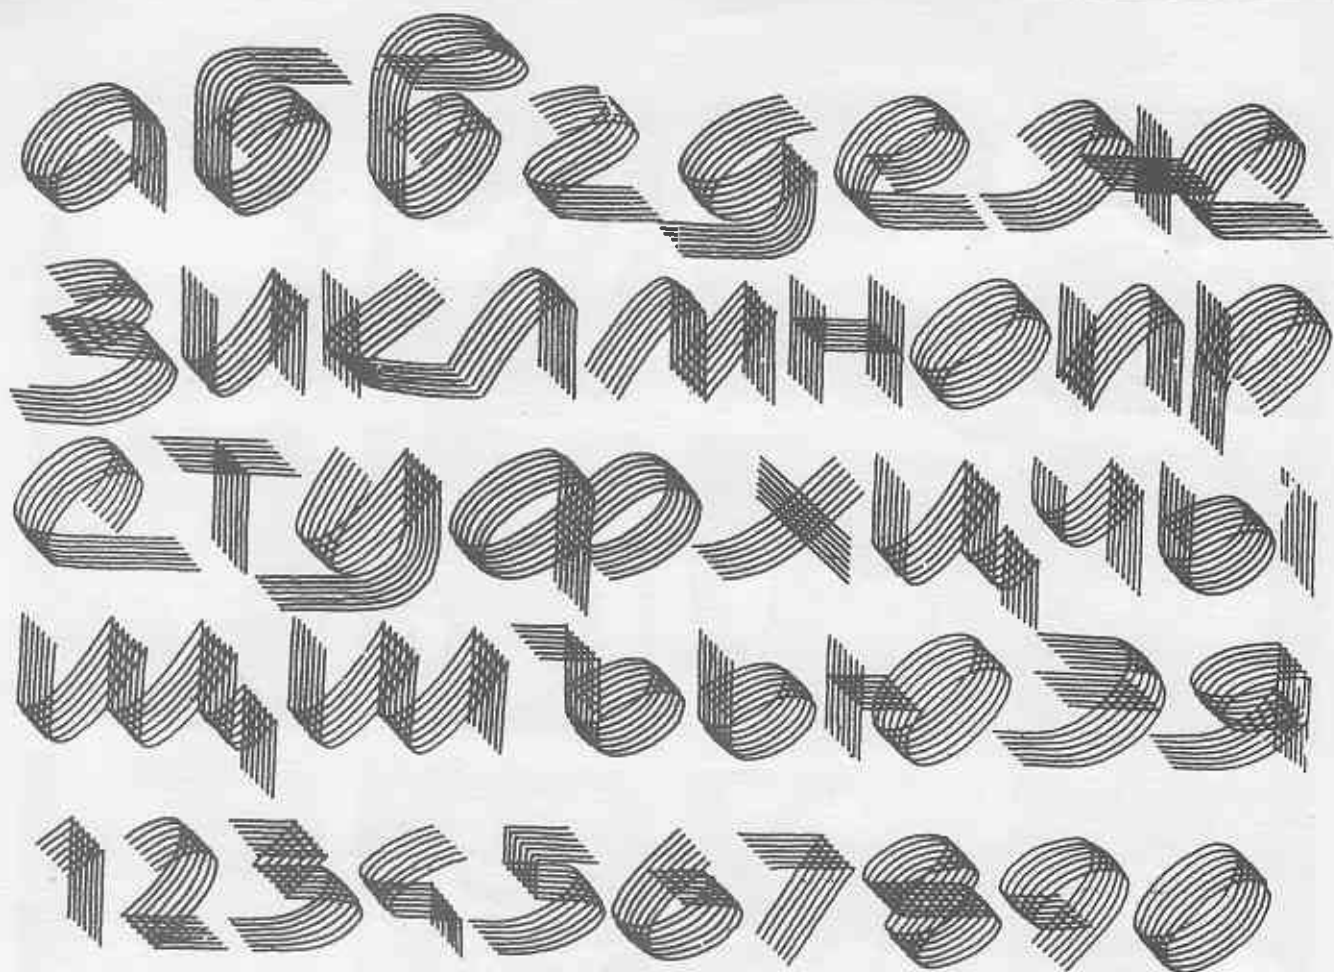 абвгдеж
зиклмнопр
стуфхцчы
щшъьюэя
1234567890